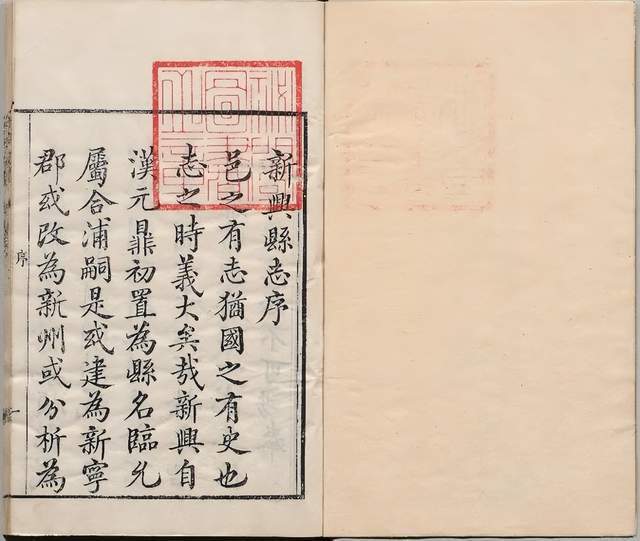 新興縣志序
邑之有志猶國之有史也
志之時義大矣哉新興自
漢元鼎初置為縣名臨允
屬合浦嗣是或建為新寧
郡或改為新州或分析為
序
一